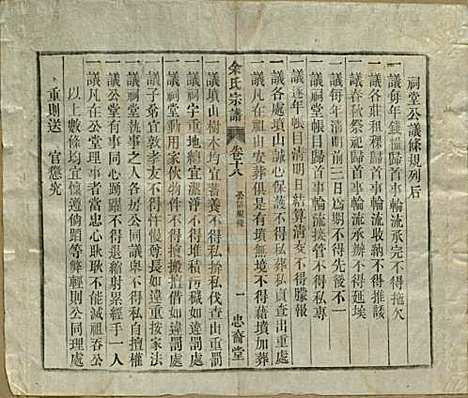 祠堂公議條規列后
一議每年錢糧歸首事輪流承完不得拖欠
一議各莊租稞歸首事輪流收納不得推諉
一議春秋祭祀歸首事輪流承辦不得延埃
一議每年清明前二日為期不得先後不一
一議祠堂帳目歸首事輪流接管不得私專
一議逐年帳目清明日結算清交不得朦報
一議各處墳山誠心保護不得私葬私貢查出重處
一議凡在祖山安葬俱是有墳無境不得藉墳加葬
余氏宗譜
卷十八
一
忠裔堂
一議墳山樹木均宜蓄養不得私伐查出重處
一議祠宇重地總宜潔淨不得堆積污穢如違罰處
一議祠堂動用家伙物件不得擅搬擅借如違罰處
一議子弟宜敦孝友不得忤觸尊長如違重按家法
一議祠堂執事之人在公同議舉不得恃強混行
一議公堂有事同心踴躍不得退縮射累經手一人
一議凡在公堂理事者忠心耿耿不能滅祖吞公
以上數件均宜懷遵倘顕等弊輕則公同理處
重則送 官懲究